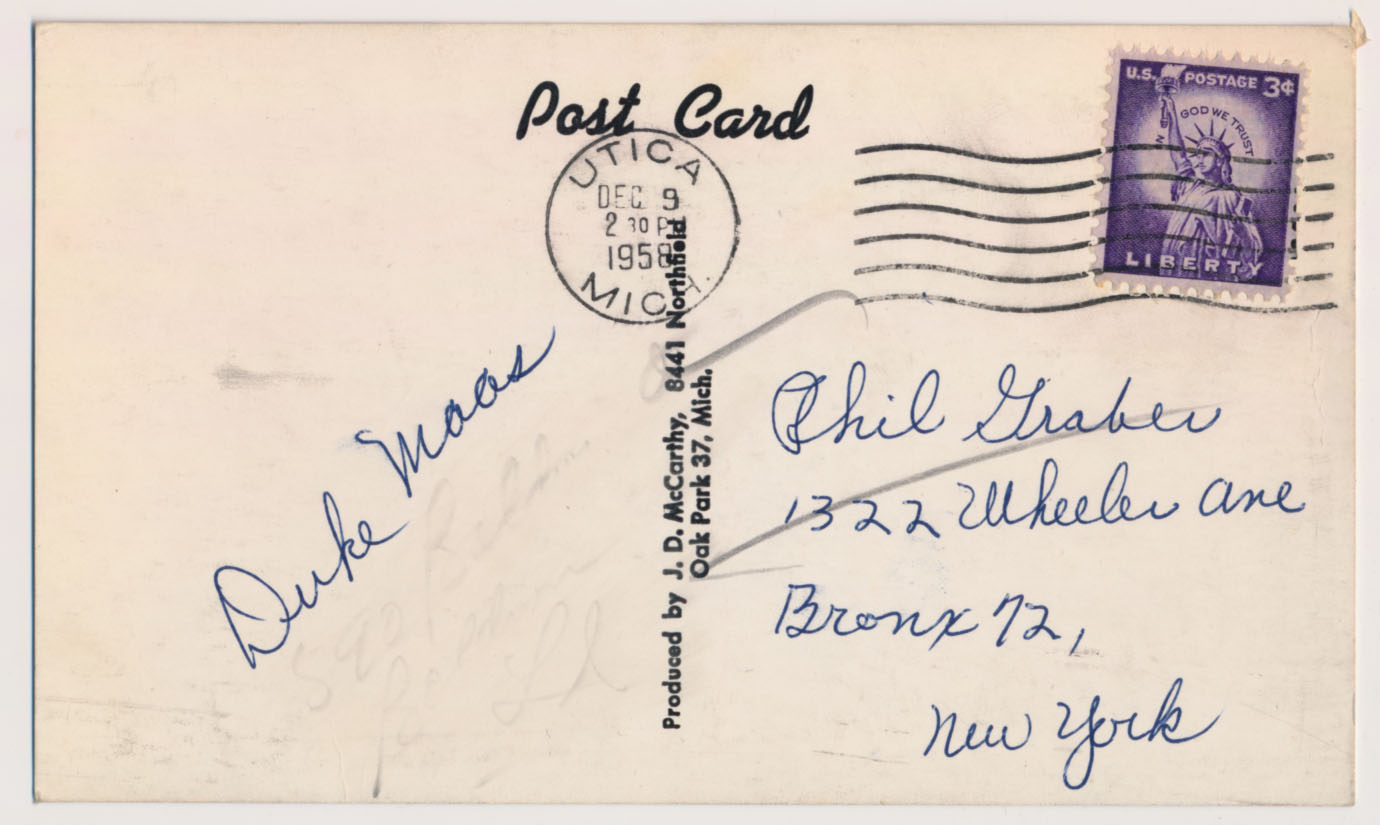 Post Card
UTICA
DEC 9
2 30 P
1958
MICH.
U.S. POSTAGE 3¢
IN GOD WE TRUST
LIBERTY
Duke Maas
Produced by J. D. McCarthy, 8441 Northfield
Oak Park 37, Mich.
Phil Graber
1322 Wheeler Ave
Bronx 72,
New York